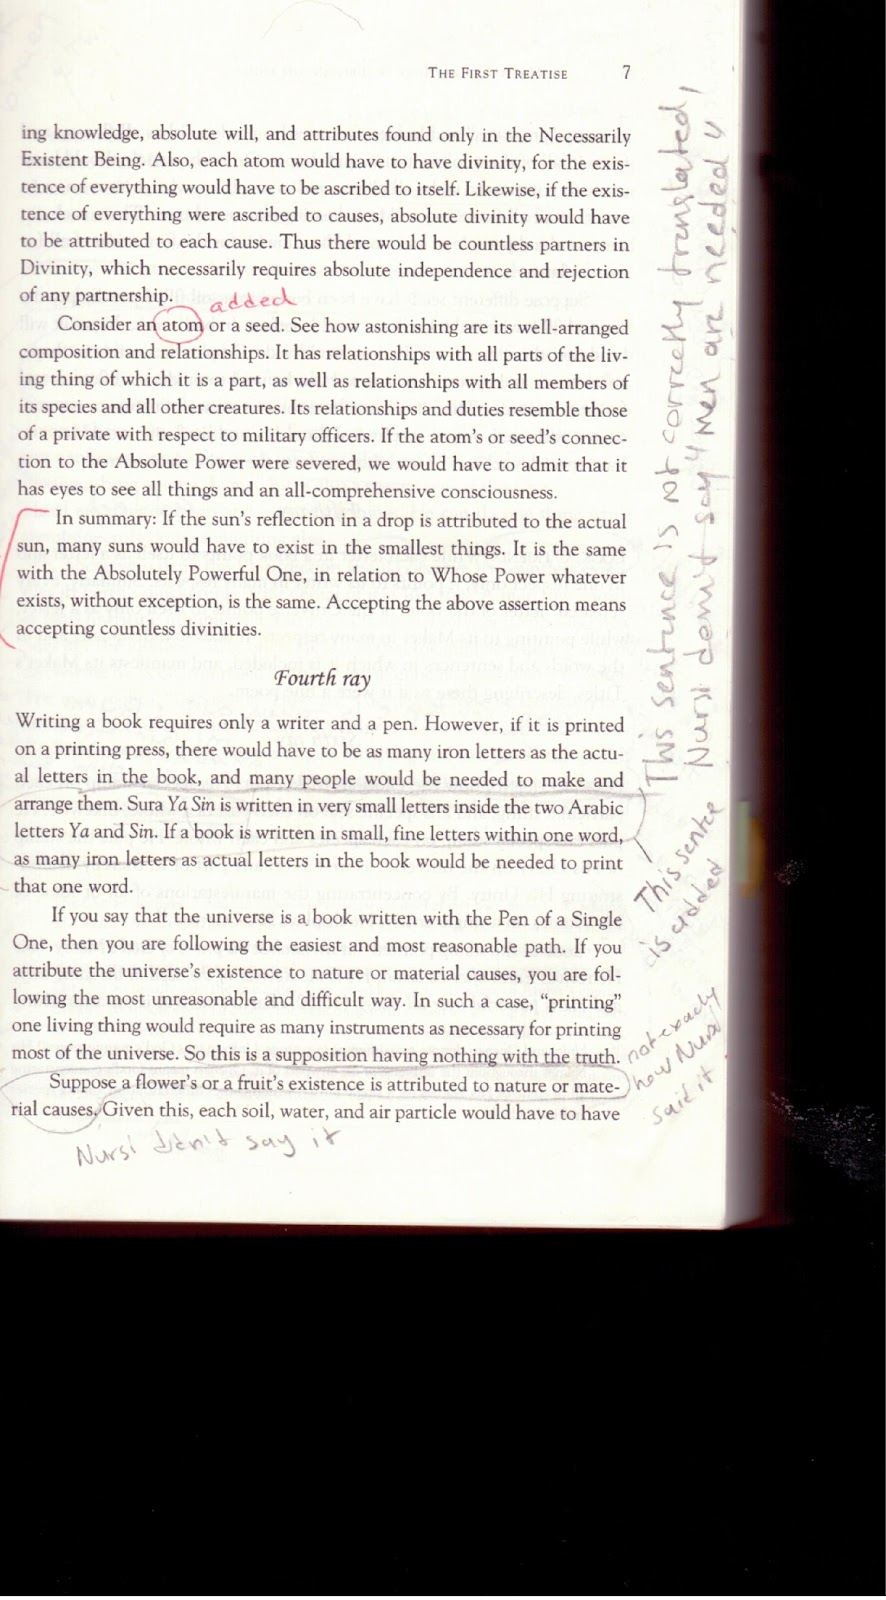 THE FIRST TREATISE 7
ing knowledge, absolute will, and attributes found only in the Necessarily
Existent Being. Also, each atom would have to have divinity, for the exis-
tence of everything would have to be ascribed to itself. Likewise, if the exis-
tence of everything were ascribed to causes, absolute divinity would have
to be attributed to each cause. Thus there would be countless partners in
Divinity, which necessarily requires absolute independence and rejection
of any partnership.
added
Consider an atom or a seed. See how astonishing are its well-arranged
composition and relationships. It has relationships with all parts of the liv-
ing thing of which it is a part, as well as relationships with all members of
its species and all other creatures. Its relationships and duties resemble those
of a private with respect to military officers. If the atom's or seed's connec-
tion to the Absolute Power were severed, we would have to admit that it
has eyes to see all things and an all-comprehensive consciousness.
In summary: If the sun's reflection in a drop is attributed to the actual
sun, many suns would have to exist in the smallest things. It is the same
with the Absolutely Powerful One, in relation to Whose Power whatever
exists, without exception, is the same. Accepting the above assertion means
accepting countless divinities.
Fourth ray
Writing a book requires only a writer and a pen. However, if it is printed
on a printing press, there would have to be as many iron letters as the actu-
al letters in the book, and many people would be needed to make and
arrange them. Sura Ya Sin is written in very small letters inside the two Arabic
letters Ya and Sin. If a book is written in small, fine letters within one word,
as many iron letters as actual letters in the book would be needed to print
that one word.
If you say that the universe is a book written with the Pen of a Single
One, then you are following the easiest and most reasonable path. If you
attribute the universe's existence to nature or material causes, you are fol-
lowing the most unreasonable and difficult way. In such a case, "printing"
one living thing would require as many instruments as necessary for printing
most of the universe. So this is a supposition having nothing with the truth.
Suppose a flower's or a fruit's existence is attributed to nature or mate-
rial causes. Given this, each soil, water, and air particle would have to have
Nursi didn't say it
This sentence is not correctly translated,
Nursi didn't say "men are needed"
This sentce
is added
not exacly
how Nursi
said it